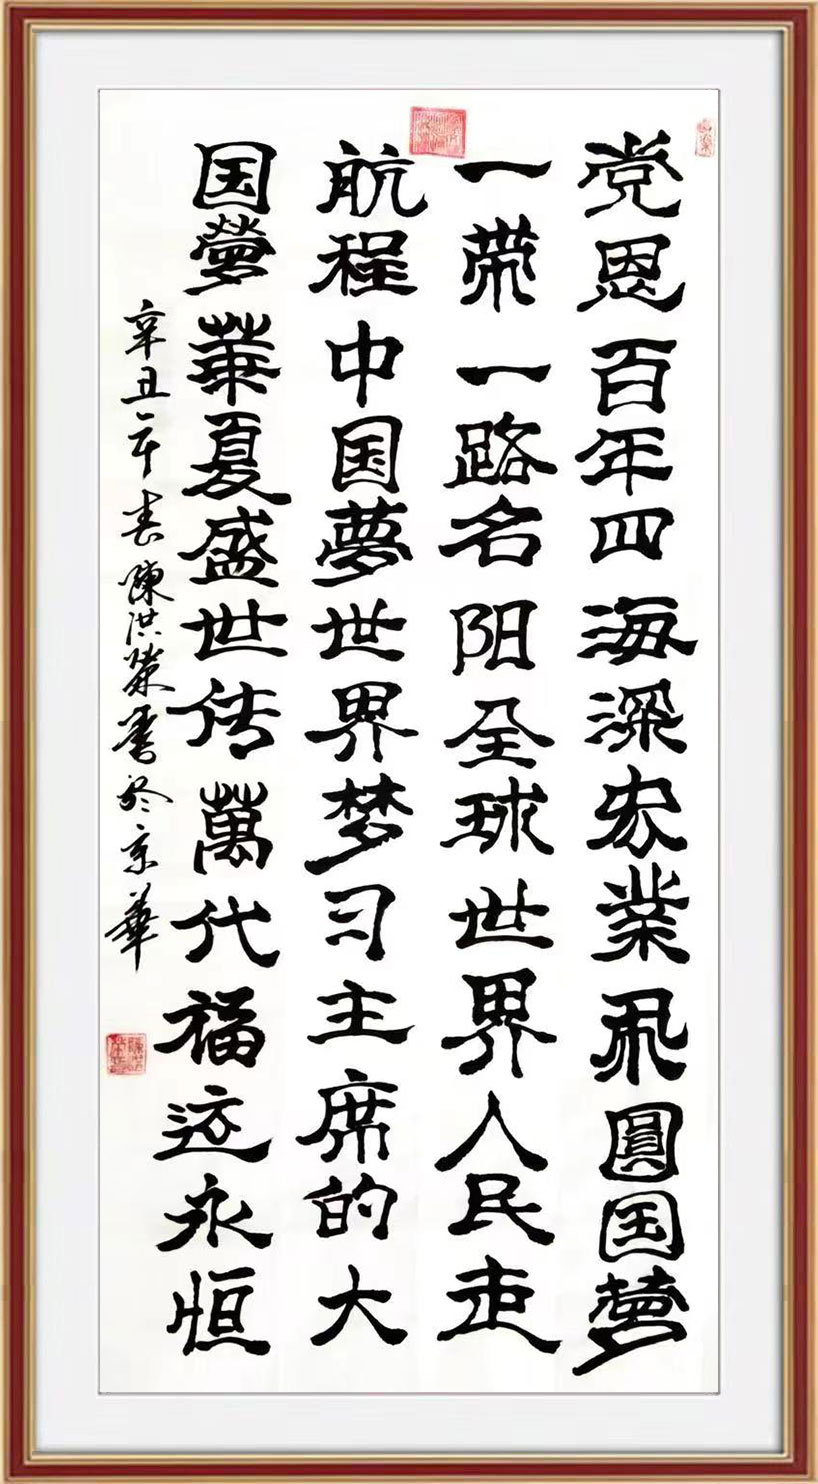 党恩百年四海深宏業飛圓国夢
一带一路名阳全球世界人民走
航程中国夢世界梦习主席的大
国夢華夏盛世传萬代福永恒
辛丑年春陳洪策書於京華